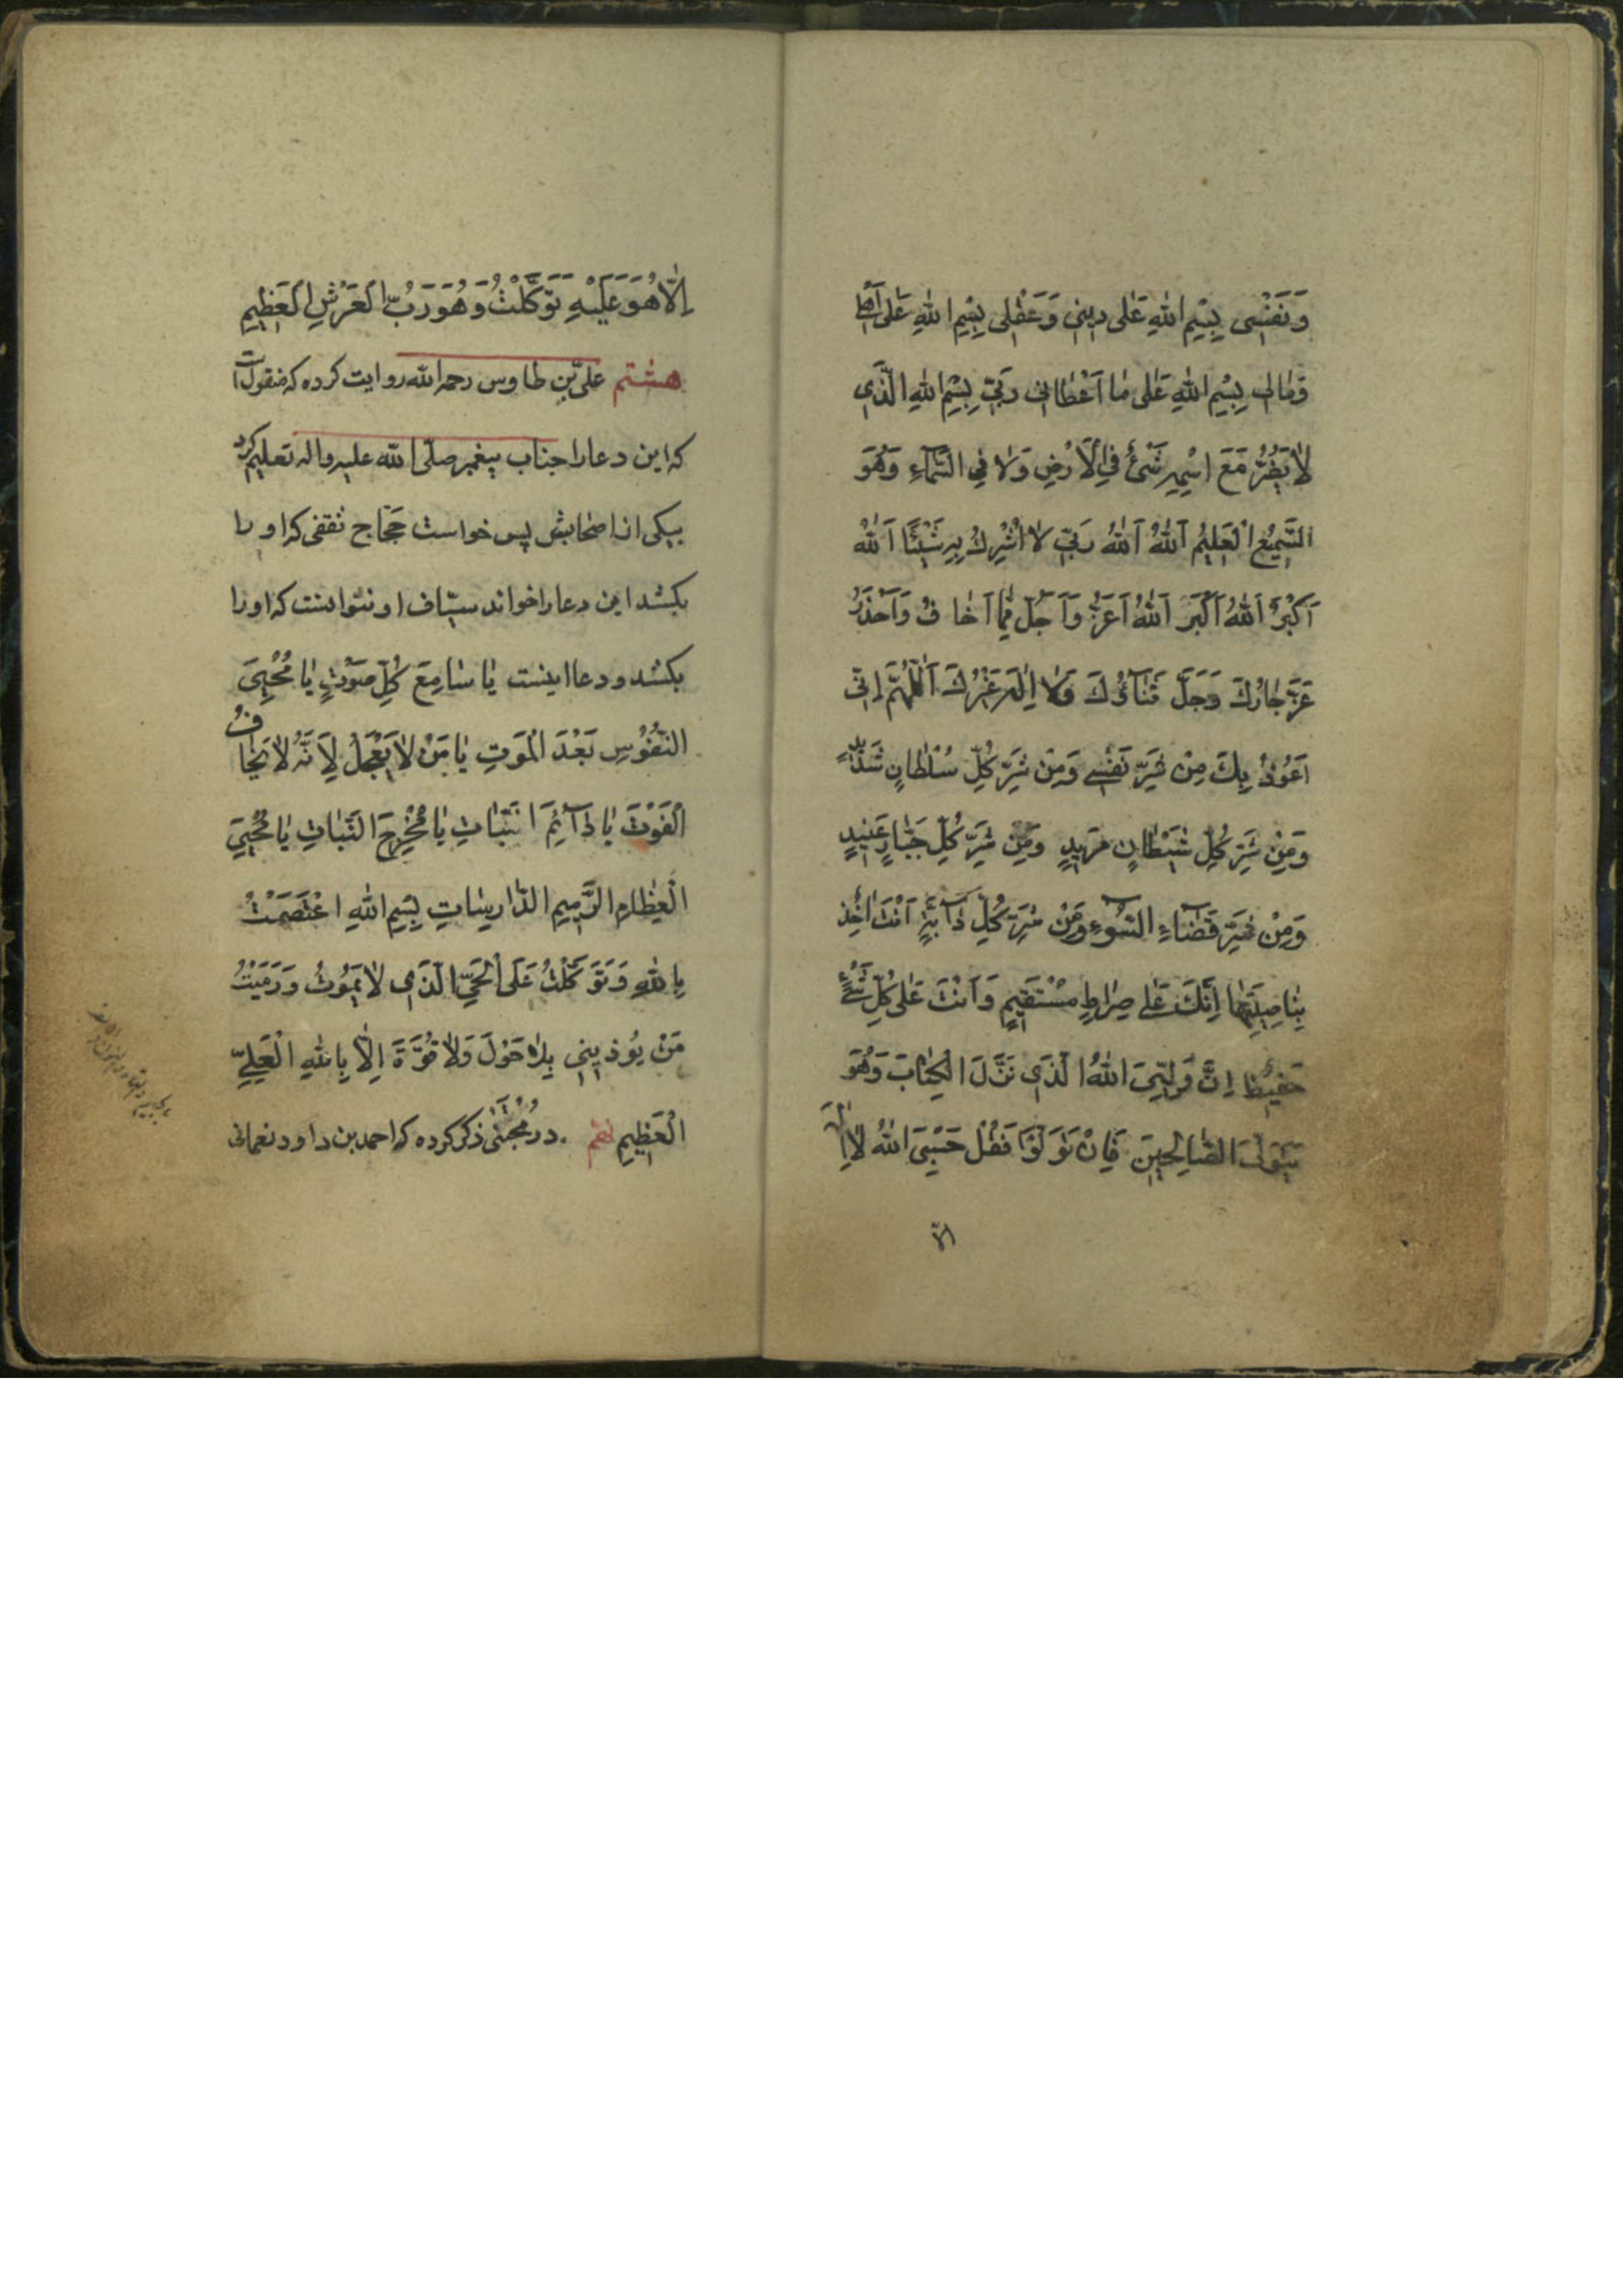 وَنَفْسٖی بِسْمِ اللهِ عَلٰی دٖینٖی وَعَقْلٖی بِسْمِ اللهِ عَلٰی اَهْلٖی
وَمٰالٖی بِسْمِ اللهِ عَلٰی مٰا اَعْطٰانٖی رَبّٖی بِسْمِ اللهِ الَّذٖی
لٰا یَضُرُّ مَعَ اسْمِهِ شَیْءٌ فِی الْاَرْضِ وَلٰا فِی السَّمٰآءِ وَهُوَ
السَّمٖیعُ الْعَلٖیمُ اَللهُ اَللهُ رَبّٖی لٰا اُشْرِكُ بِهِ شَیْئًا اَللهُ
اَكْبَرُ اَللهُ اَكْبَرُ اَللهُ اَعَزُّ وَاَجَلُّ مِمّٰا اَخٰافُ وَاَحْذَرُ
عَزَّ جٰارُكَ وَجَلَّ ثَنٰآؤُكَ وَلٰا اِلٰهَ غَیْرُكَ اَللّٰهُمَّ اِنّٖی
اَعُوذُ بِكَ مِنْ شَرِّ نَفْسٖی وَمِنْ شَرِّ كُلِّ سُلْطٰانٍ شَدٖیدٍ
وَمِنْ شَرِّ كُلِّ شَیْطٰانٍ مَرٖیدٍ وَمِنْ شَرِّ كُلِّ جَبّٰارٍ عَنٖیدٍ
وَمِنْ شَرِّ قَضٰآءِ السُّوٓءِ وَمِنْ شَرِّ كُلِّ دٰآبَّةٍ اَنْتَ اٰخِذٌ
بِنٰاصِیَتِهٰا اِنَّكَ عَلٰی صِرٰاطٍ مُسْتَقٖیمٍ وَاَنْتَ عَلٰی كُلِّ شَیْءٍ
حَفٖیظٌ اِنَّ وَلِیِّیَ اللهُ الَّذٖی نَزَّلَ الْكِتٰابَ وَهُوَ
یَتَوَلَّی الصّٰالِحٖینَ فَاِنْ تَوَلَّوْا فَقُلْ حَسْبِیَ اللهُ لٰا اِلٰهَ
اِلّا
اِلّٰا هُوَ عَلَیْهِ تَوَكَّلْتُ وَهُوَ رَبُّ الْعَرْشِ الْعَظٖیمِ
هشتم علیّ بن طاوس رحمه الله روایت کرده که منقول است
که این دعا را جناب پیغمبر صلّی الله علیه و اله تعلیم کرد
بیکی از اصحابش پس خواست حجّاج ثقفی که او را
بکشد این دعا را خواند سیّاف او نتوانست که او را
بکشد و دعا اینست یٰا سٰامِعَ كُلِّ صَوْتٍ یٰا مُحْیِیَ
النُّفُوسِ بَعْدَ الْمَوْتِ یٰا مَنْ لٰا یَعْجَلُ لِاَنَّهُ لٰا یَخٰافُ
الْفَوْتَ یٰا دٰآئِمَ الثَّبٰاتِ یٰا مُخْرِجَ النَّبٰاتِ یٰا مُحْیِیَ
الْعِظٰامِ الرَّمٖیمِ الدّٰارِسٰاتِ بِسْمِ اللهِ اعْتَصَمْتُ
بِاللهِ وَتَوَكَّلْتُ عَلَی الْحَیِّ الَّذٖی لٰا یَمُوتُ وَرَمَیْتُ
مَنْ یُوذٖینٖی بِلٰا حَوْلَ وَلٰا قُوَّةَ اِلّٰا بِاللهِ الْعَلِیِّ
الْعَظٖیمِ نهم در مُجْتَنٰی ذکر کرده که احمد بن داود نعمانی